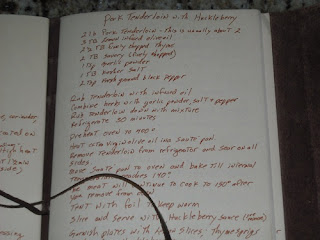 Pork Tenderloin with Huckleberry
2 lb Pork Tenderloin - This is usually about 2
3 TB Lemon infused olive oil
2 TB finely chopped Thyme
2 TB Savory (finely chopped)
1 Tsp garlic powder
1 TB Kosher Salt
2 Tsp fresh ground black pepper
Rub Tenderloin with infused oil
Combine herbs with garlic powder, salt & pepper
Rub Tenderloin down with mixture
Refrigerate 30 minutes
Preheat oven to 400°
Heat extra virgin olive oil into saute pan.
Remove Tenderloin from refrigerator and sear on all
sides.
Move saute pan to oven and bake till internal
reaches 140°
meat will continue to cook to 150° after
you remove from oven
Tent with foil to keep warm
Slice and serve with Huckleberry sauce
Garnish plates with Slices, Thyme Sprigs